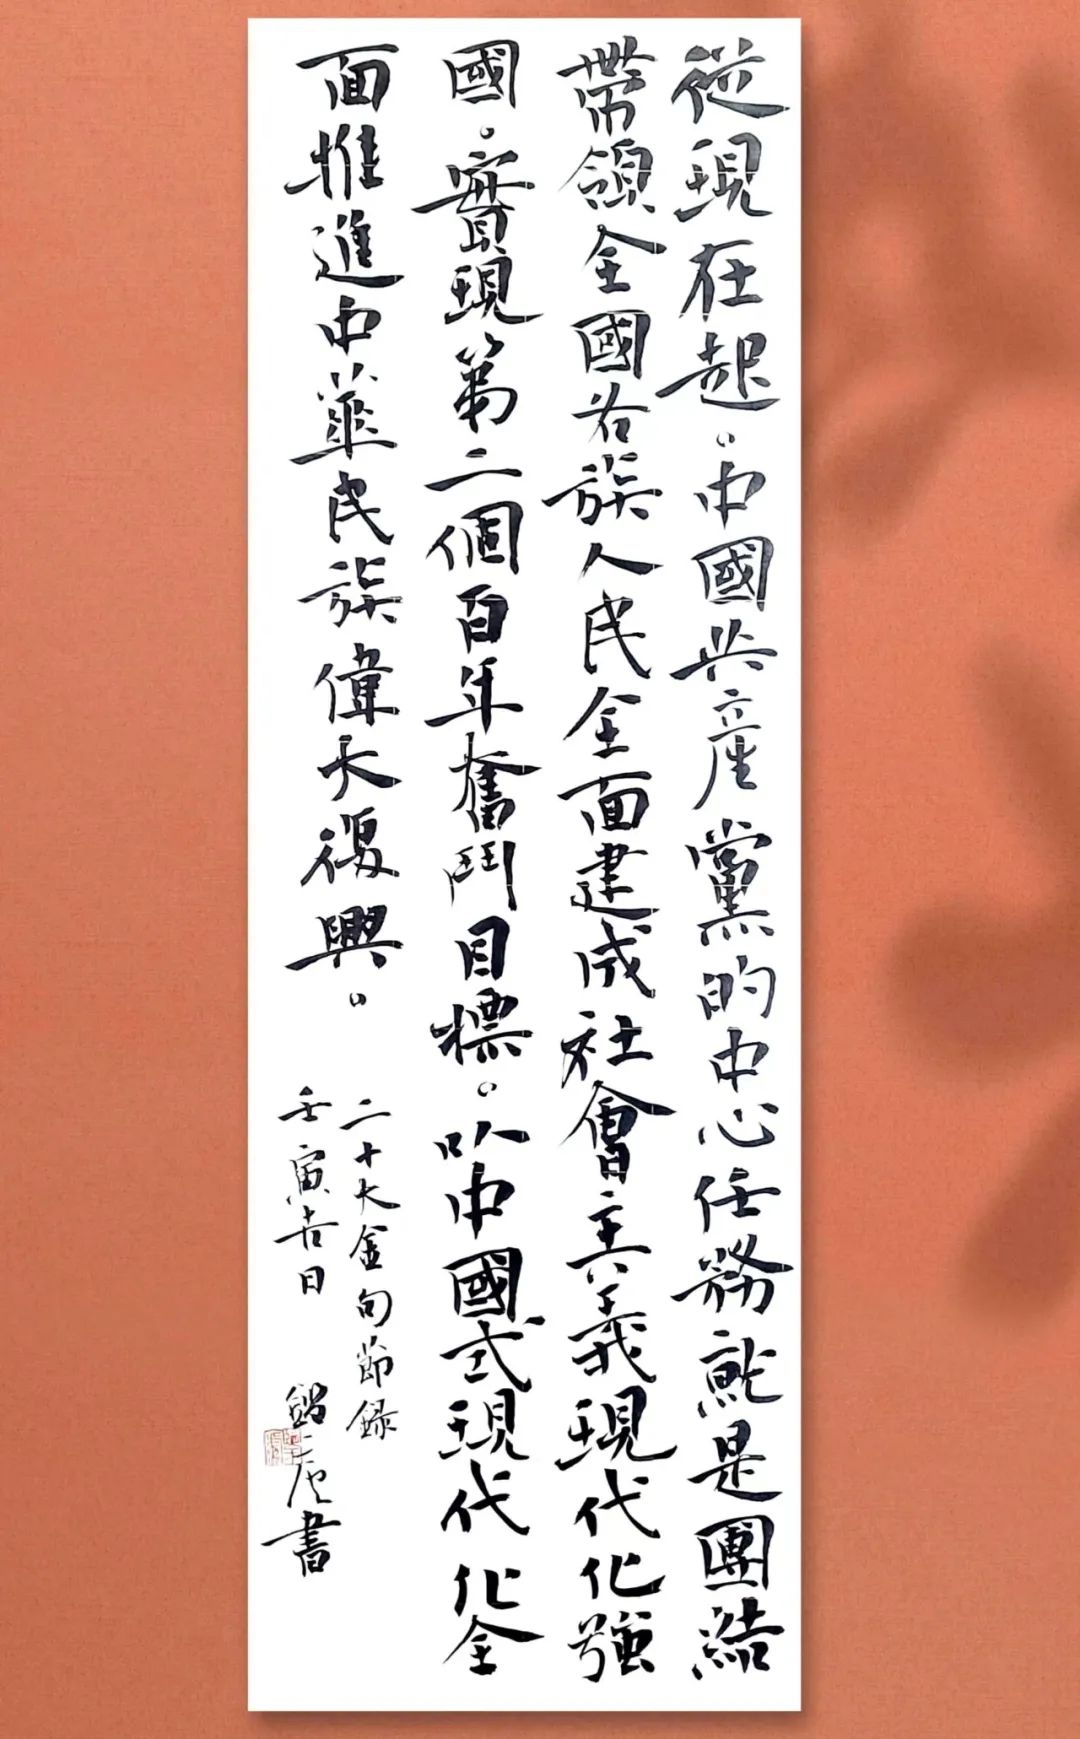 從現在起。中國共產黨的中心任務就是團結
帶領全國各族人民全面建成社會主義現代化強
國。實現第二個百年奮鬥目標。以中國式現代化全
面推進中華民族偉大復興。
二十大金句節録
壬寅吉日
書